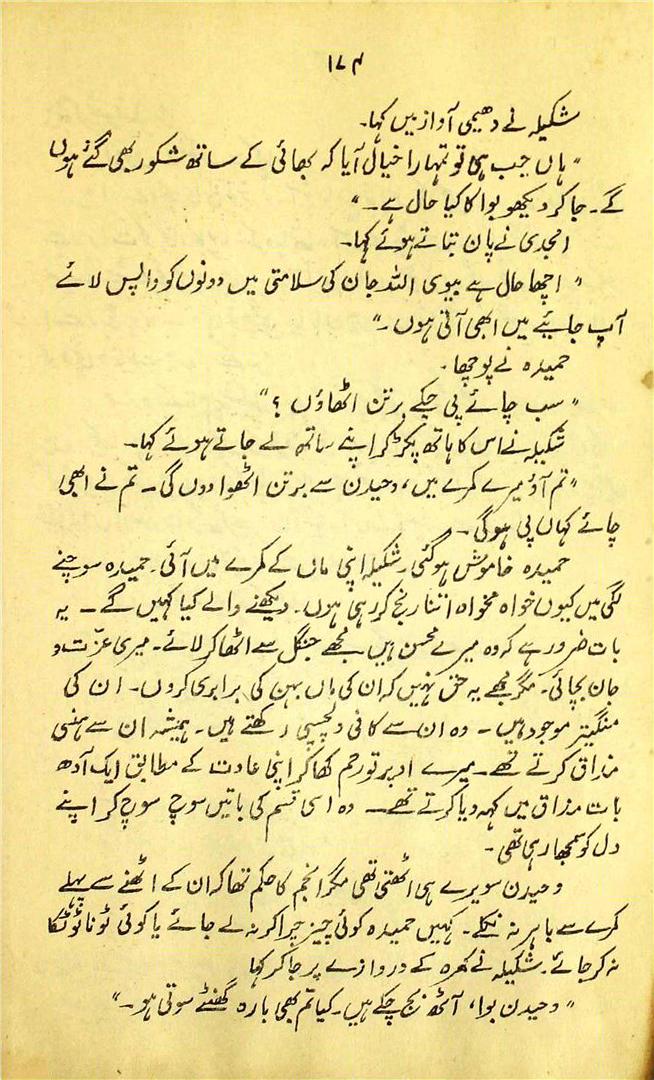 ۱۷۴
شکیلہ نے دھیمی آواز میں کہا۔
"ہاں جب ہی تو تمہارا خیال آیا کہ بھائی کے ساتھ شکور بھی گئے ہوں
گے۔ جا کر دیکھو بوا کا کیا حال ہے۔"
امجدی نے پان بناتے ہوئے کہا۔
"اچھا حال ہے بیوی اللہ جان کی سلامتی میں دونوں کو واپس لائے
آپ جائیے میں ابھی آتی ہوں۔"
حمیدہ نے پوچھا۔
"سب چائے پی چکے برتن اٹھاؤں ؟"
شکیلہ نے اس کا ہاتھ پکڑ کر اپنے ساتھ لے جاتے ہوئے کہا۔
"تم آؤ میرے کمرے میں، وحیدن سے برتن اٹھوا دوں گی۔ تم نے ابھی
چائے کہاں پی ہوگی۔
حمیدہ خاموش ہو گئی۔ شکیلہ اپنی ماں کے کمرے میں آئی۔ حمیدہ سوچنے
لگی میں کیوں خواہ مخواہ اتنا رنج کر رہی ہوں۔ دیکھنے والے کیا کہیں گے۔ یہ
بات ضرور ہے کہ وہ میرے محسن ہیں مجھے جنگل سے اٹھا کر لائے۔ میری عزت و
جان بچائی۔ مگر مجھے یہ حق نہیں کہ ان کی ماں بہن کی برابری کروں۔ ان کی
منگیتر موجود ہیں۔ وہ ان سے کافی دلچسپی رکھتے ہیں۔ ہمیشہ ان سے ہنسی
مذاق کرتے تھے۔ میرے اوپر تو رحم کھا کر اپنی عادت کے مطابق ایک آدھ
بات مذاق میں کہہ دیا کرتے تھے۔ وہ اسی قسم کی باتیں سوچ سوچ کر اپنے
دل کو سمجھا رہی تھی۔
وحیدن سویرے ہی اٹھتی تھی مگر انجم کا حکم تھا کہ ان کے اٹھنے سے پہلے
کمرے سے باہر نہ نکلے۔ کہیں حمیدہ کوئی چیز چرا کر نہ لے جائے یا کوئی ٹونا ٹوٹکا
نہ کر جائے۔ شکیلہ نے کمرہ کے دروازے پر جا کر کہا
"وحیدن بوا، آٹھ بج چکے ہیں۔ کیا تم بھی بارہ گھنٹے سوتی ہو۔"